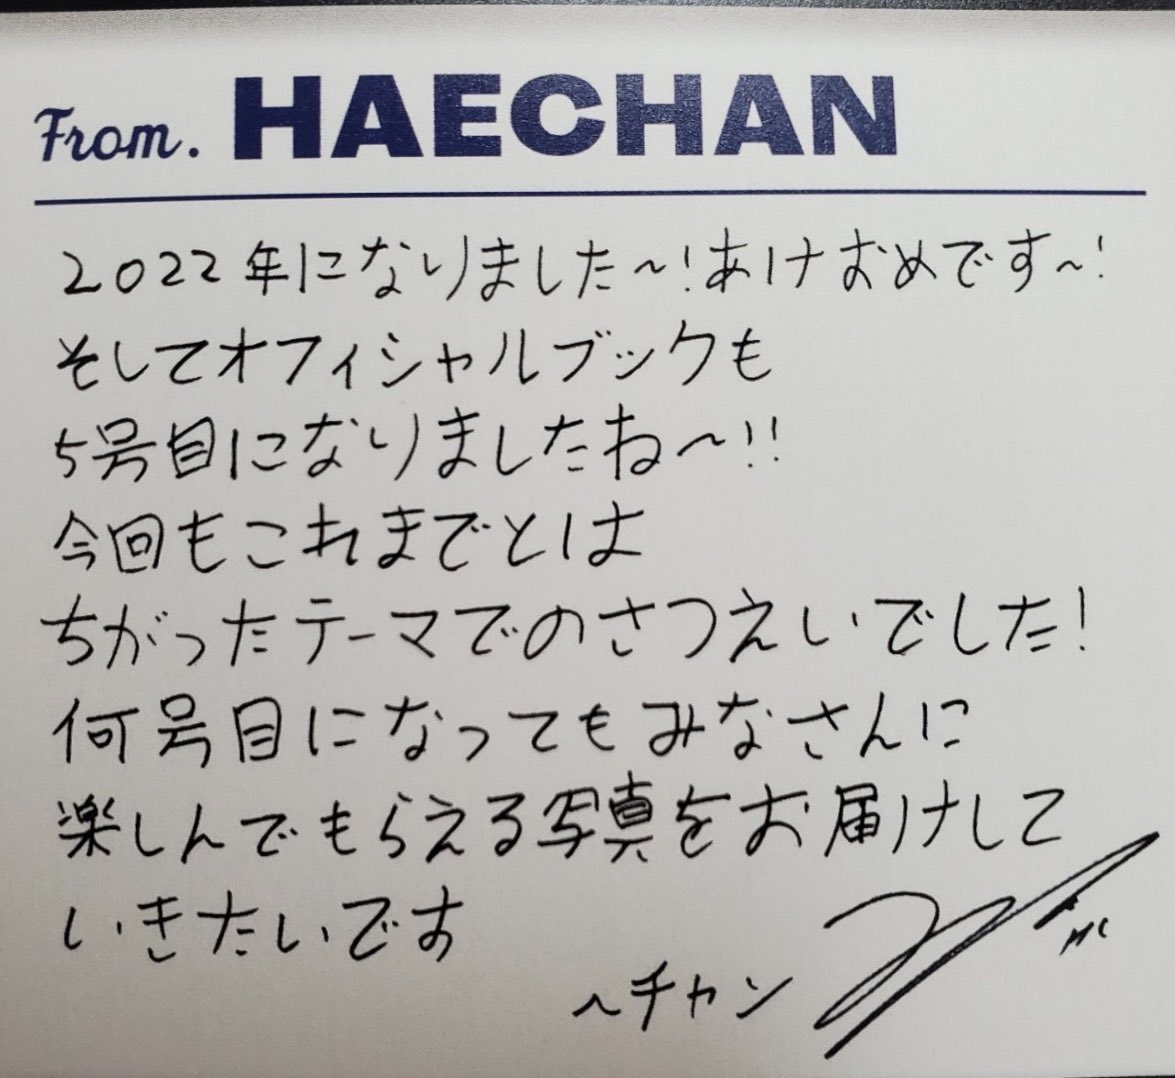 From. HAECHAN
2022年になりました〜!あけおめです〜!
そしてオフィシャルブックも
5号目になりましたね〜!!
今回もこれまでとは
ちがったテーマでのさつえいでした!
何号目になってもみなさんに
楽しんでもらえる写真をお届けして
いきたいです
ヘチャン